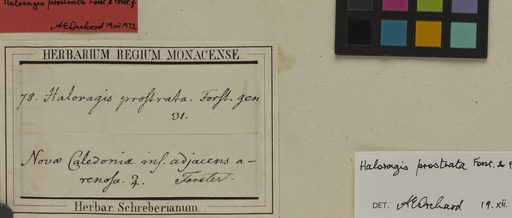 Haloragis prostrata Forst. & Forst. f
AEOrchard 19.xii.1972
HERBARIUM REGIUM MONACENSE.
78. Haloragis prostrata. Forst. gen
31.
Novæ Caledoniæ ins. adjacens a-
renosa. ♃. Forster.
Herbar. Schreberianum.
Haloragis prostrata Forst. &
DET. AEOrchard 19.xii.